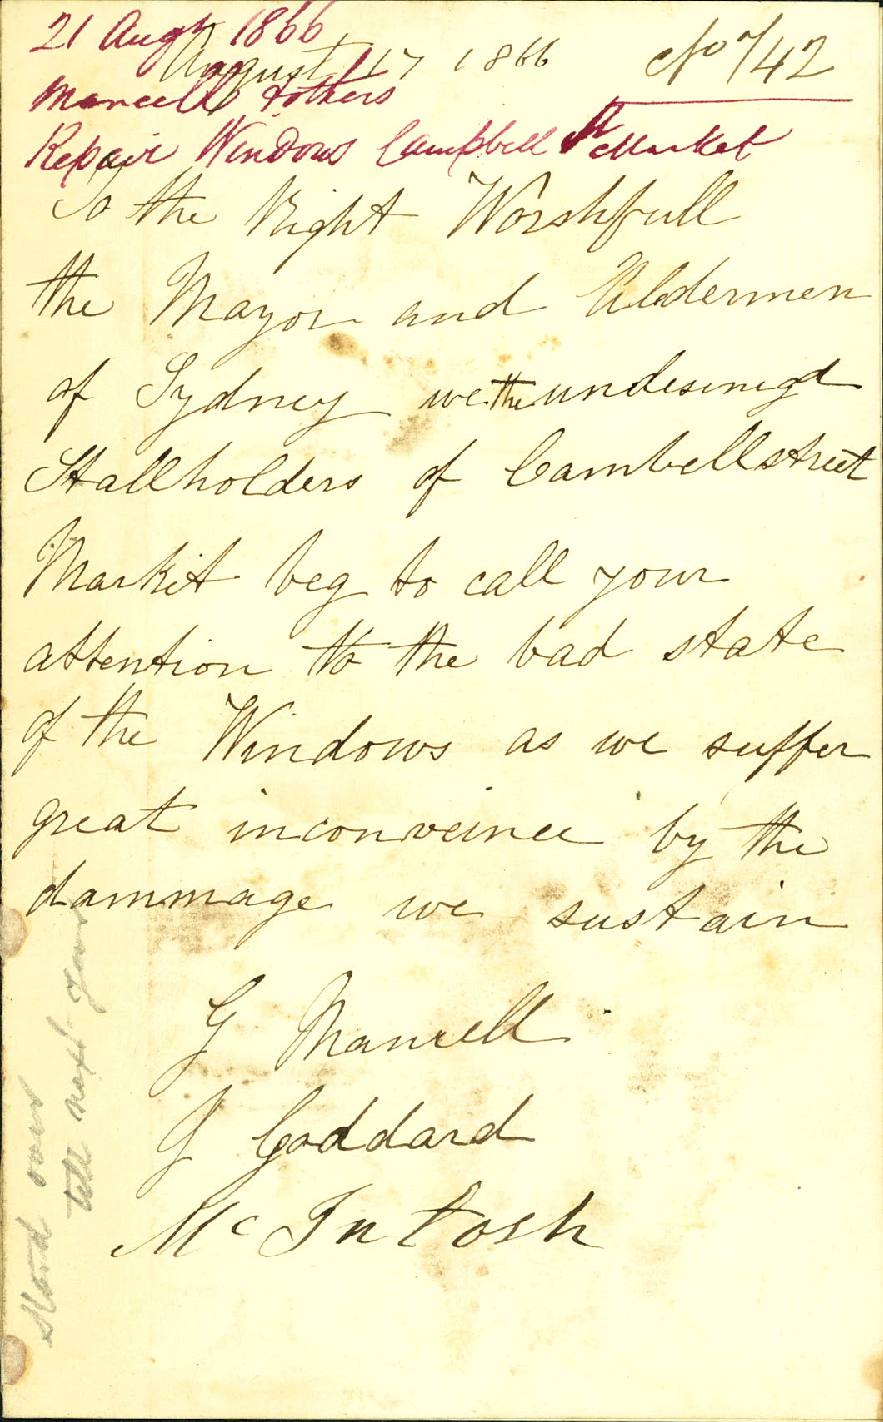 21 Augt 1866
August 17 1866
No 742
Mancell & others
Repair Windows Campbell St Market
To the Right Worshfull
the Mayor and Aldermen
of Sydney we the undesinegd
Stallholders of Cambellstreet
Markit beg to call your
attention to the bad state
of the Windows as we suffer
great inconveince by the
dammage we sustain
G Mancell
J Goddard
Mc Intosh
Stand over
till next year